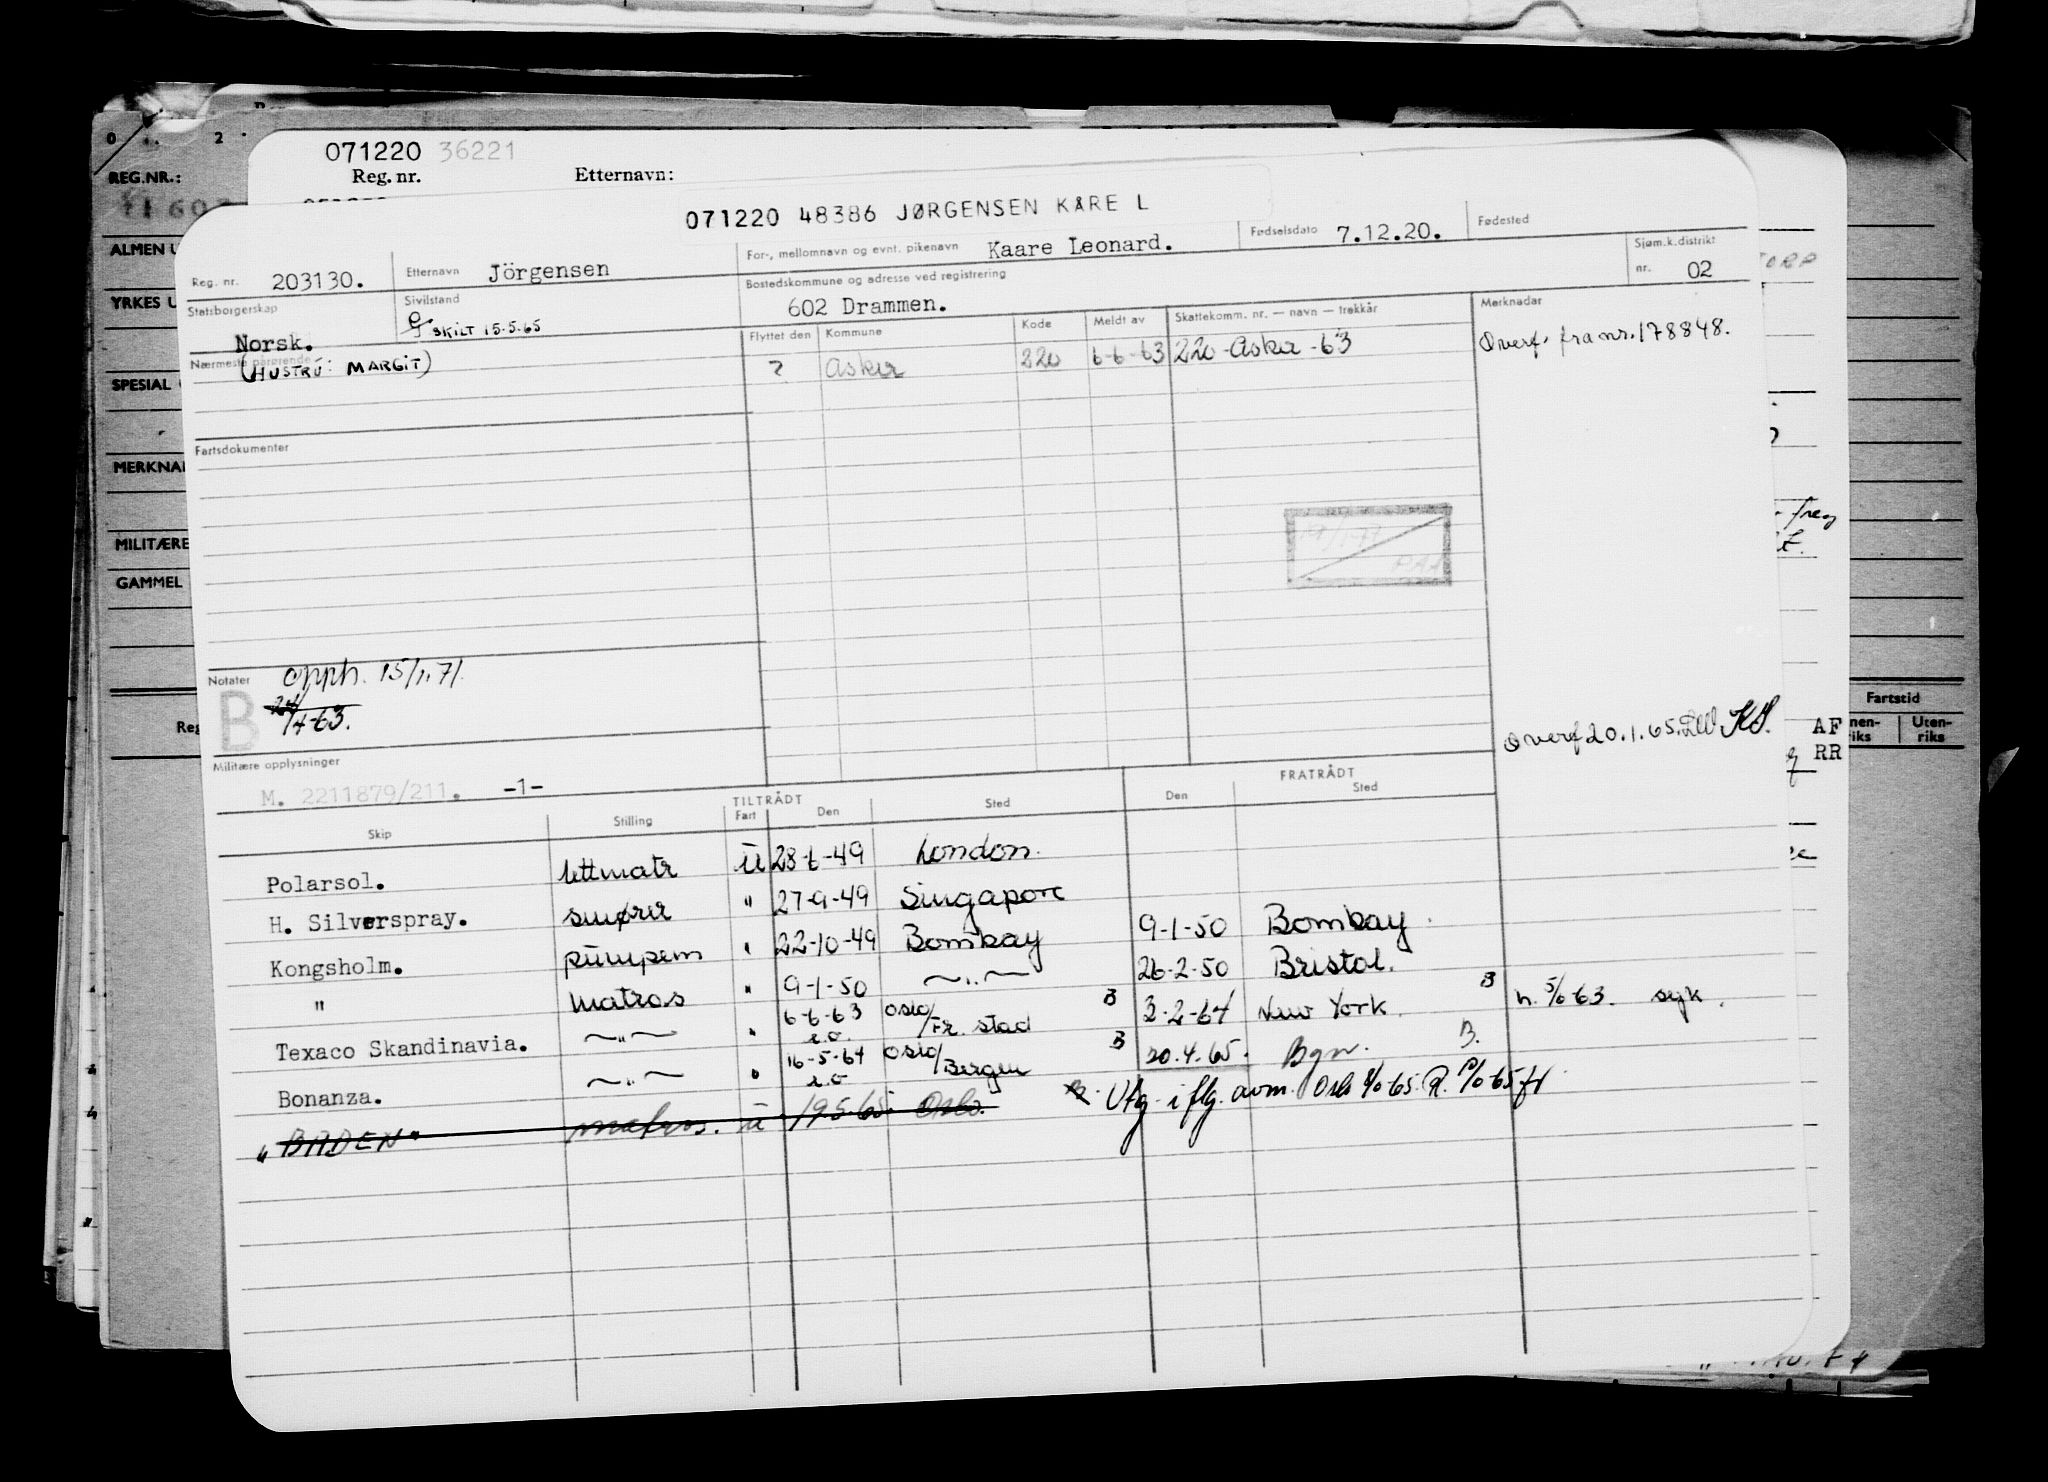 071220 36221
Reg. nr. Etternavn:
071220 48386 JØRGENSEN KÅRE L
Reg. nr. 203130. Etternavn Jörgensen For-, mellomnavn og evnt. pikenavn Kaare Leonard. Fødselsdato 7.12.20. Fødested
Statsborgerskap Norsk. Sivilstand SKILT 15-5-65 Bostedskommune og adresse ved registrering 602 Drammen. Sjøm.k.distrikt nr. 02
Nærmeste pårørende (HUSTRU: MARGIT) Flyttet den Kommune Kode Meldt av Skattekomm. nr. — navn — trekkår Merknader
? Asker 220 6-6-63 220-Asker-63 Overf. fra nr. 178848.
Fartsdokumenter
Notater opph. 15/1.71.
B 24/4-63.
Overf 20.1.65.
Militære opplysninger
M. 2211879/211. -1-
TILTRÅDT FRATRÅDT
Skip Stilling Fart Den Sted Den Sted
Polarsol. lettmatr U 28-6-49 London.
H. Silverspray. smører " 27-9-49 Singapore
Kongsholm. pumpem " 22-10-49 Bombay 9-1-50 Bombay.
" matros " 9-1-50 ~"~ 26-2-50 Bristol.
Texaco Skandinavia. ~"~ " 6-6-63 Oslo/Fr. stad B 3-2-64 New York. B h. 5/6-63. syk.
Bonanza. ~"~ " 16-5-64 Oslo/Bergen B 20.4.65. Bgn. B.
"BADEN" matros. U 19.5.65 Oslo. Utg. i flg. avm. Oslo
REG.NR.:
ALMEN U
YRKES U
SPESIAL
MERKNA
MILITÆRE
GAMMEL
Reg
Fartstid
Innen-riks Uten-riks
AF
RR